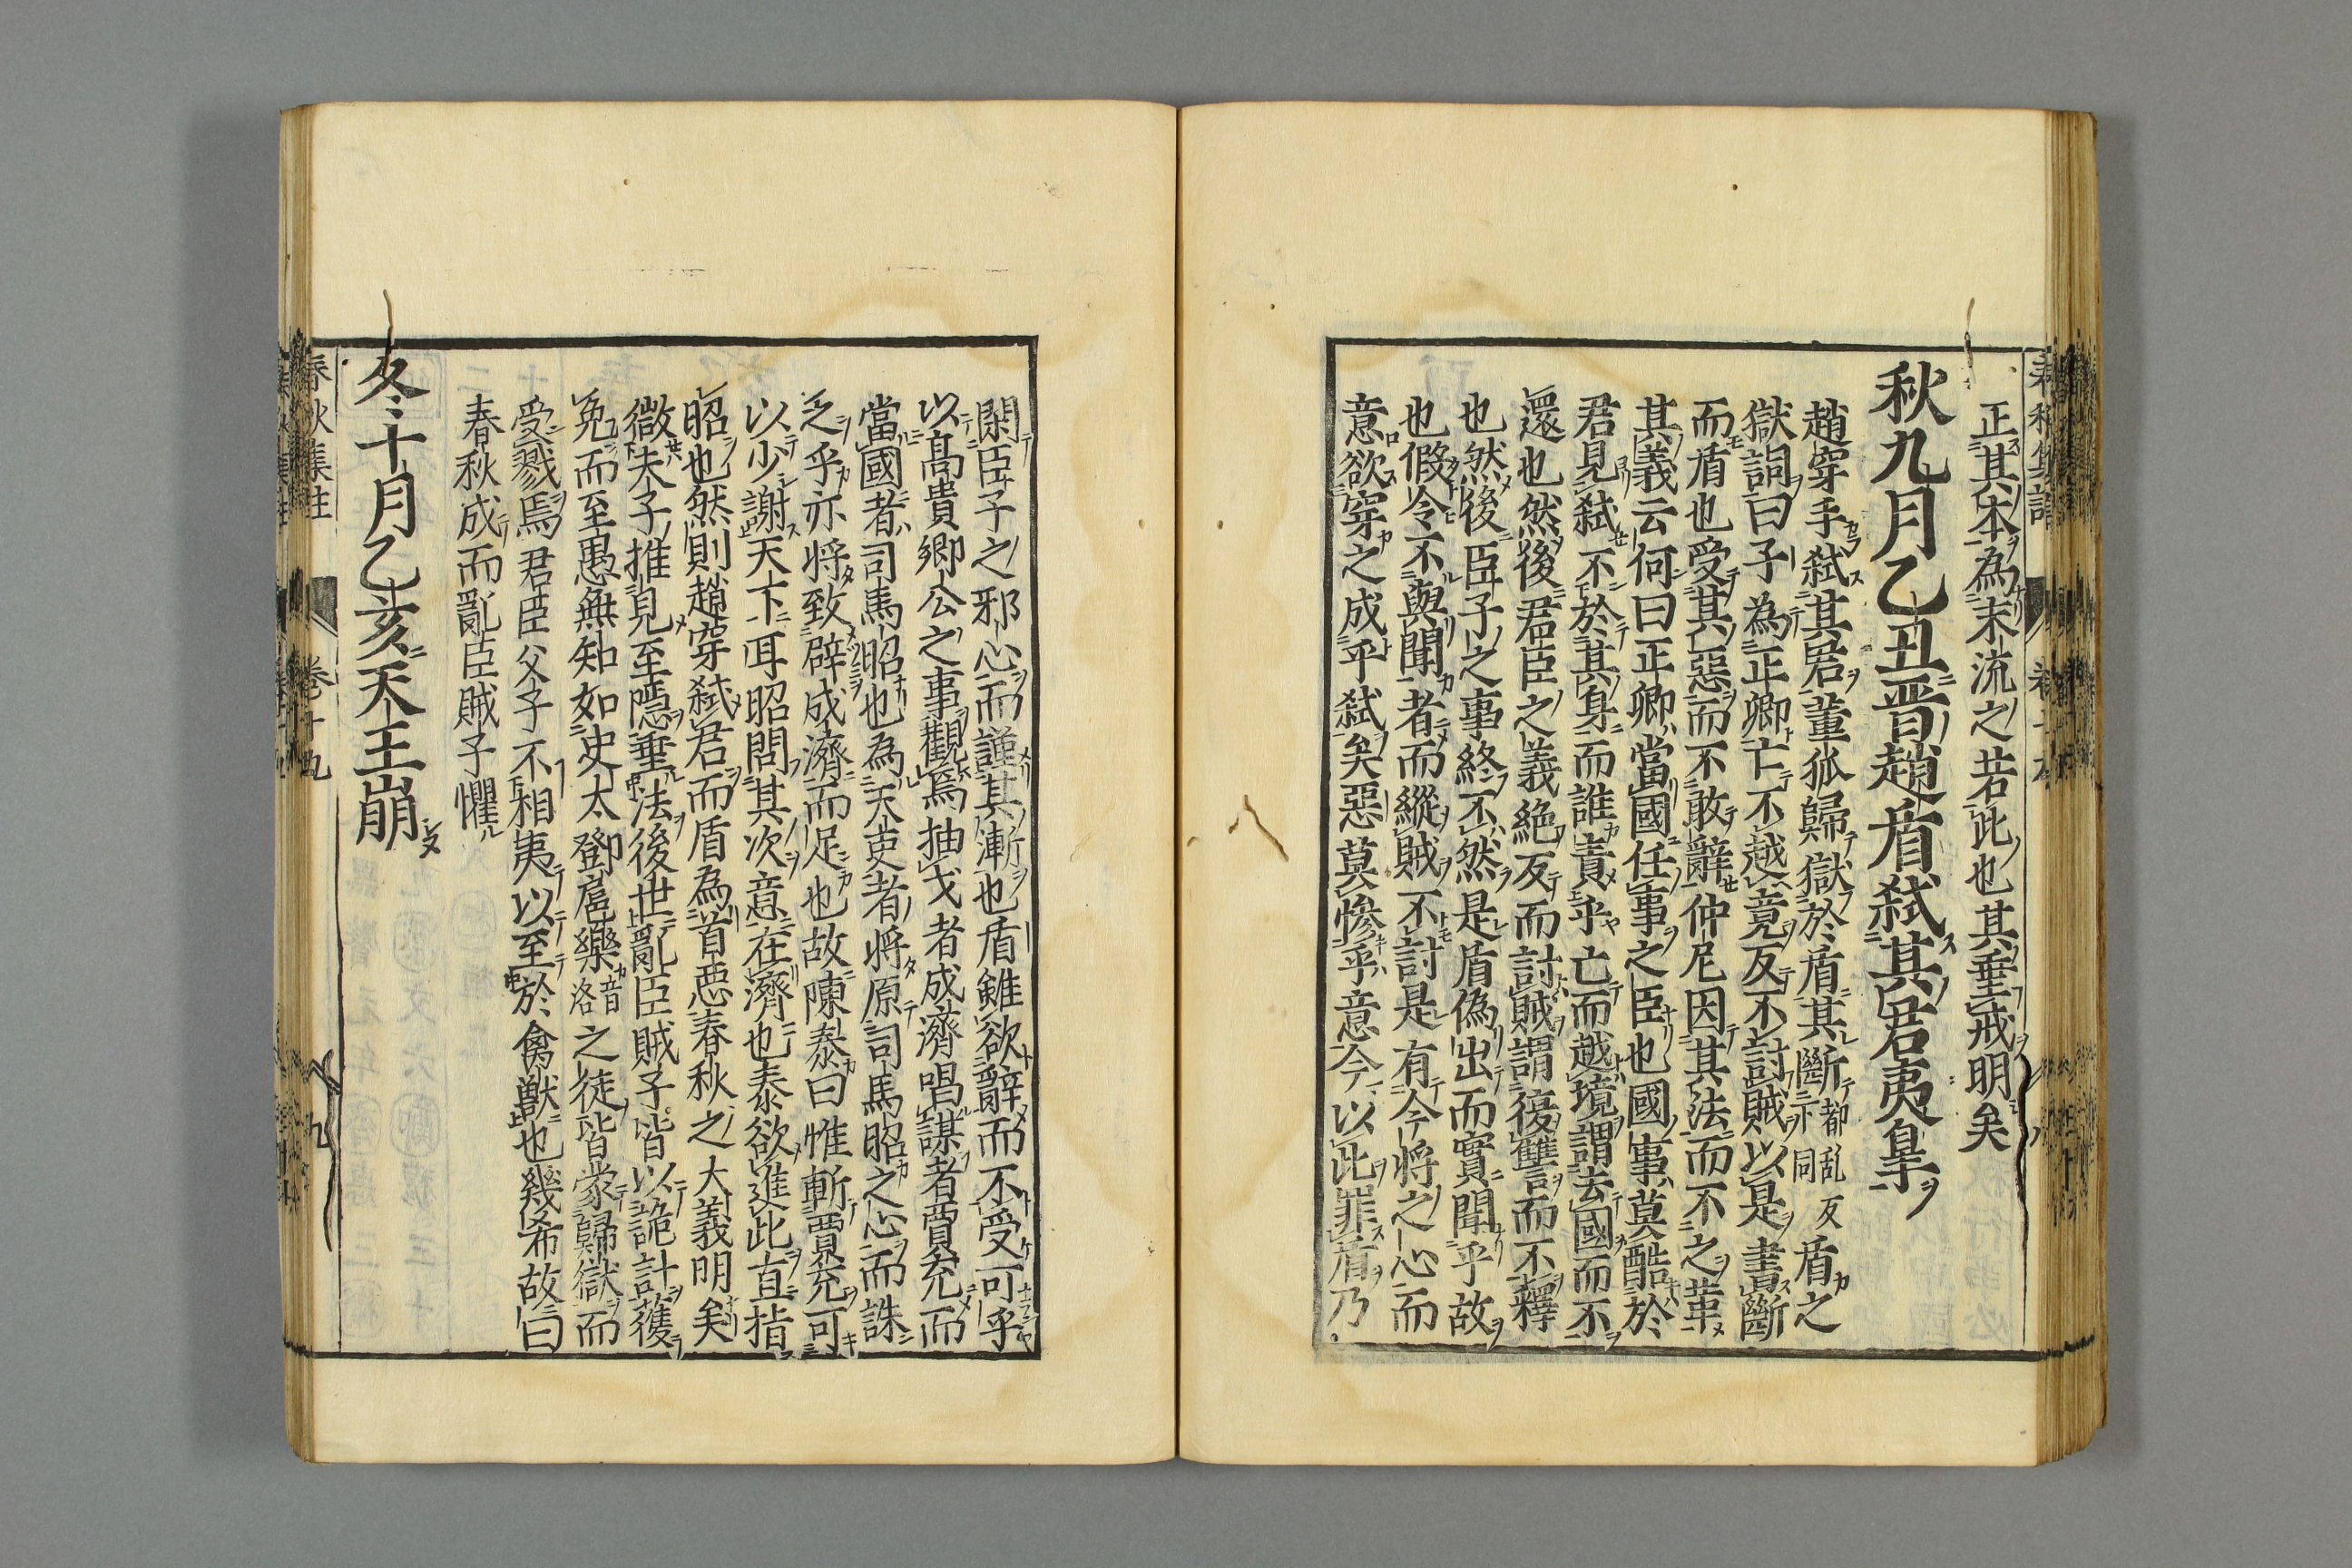 正其本為末流之若此也其垂戒明矣
秋九月乙丑晋趙盾弑其君夷皐
趙穿手弑其君董狐歸獄於盾其斷都乱反亦同盾之
獄詞曰子為正卿亡不越竟反不討賊以是書斷
而盾也受其惡而不敢辭仲尼因其法而不之革
其義云何曰正卿當國任事之臣也國事莫酷於
君見弑不於其身而誰責乎亡而越境謂去國而不
還也然後君臣之義絶反而討賊謂復讐而不釋
也然後臣子之事終不然是盾偽出而實聞乎故
也假令不與聞者而縱賊不討是有今將之心而
意欲穿之成乎弑矣惡莫慘乎意今以此罪盾乃
閑臣子之邪心而謹其漸也盾雖欲辭而不受可乎
以髙貴卿公之事觀焉抽戈者成濟唱謀者賈充而
當國者司馬昭也為天吏者將原司馬昭之心而誅
之乎亦將致辟成濟而足也故陳泰曰惟斬賈充可
以少謝天下耳昭問其次意在濟也泰欲進此直指
昭也然則趙穿弑君而盾為首惡春秋之大義明矣
微夫子推見至隱垂法後世亂臣賊子皆以詭計獲
免而至愚無知如史太鄧扈樂音洛之徒皆蒙歸獄而
受戮焉君臣父子不相夷以至於禽獸也幾希故曰
春秋成而亂臣賊子懼
冬十月乙亥天王崩
春秋集註 卷十九 九